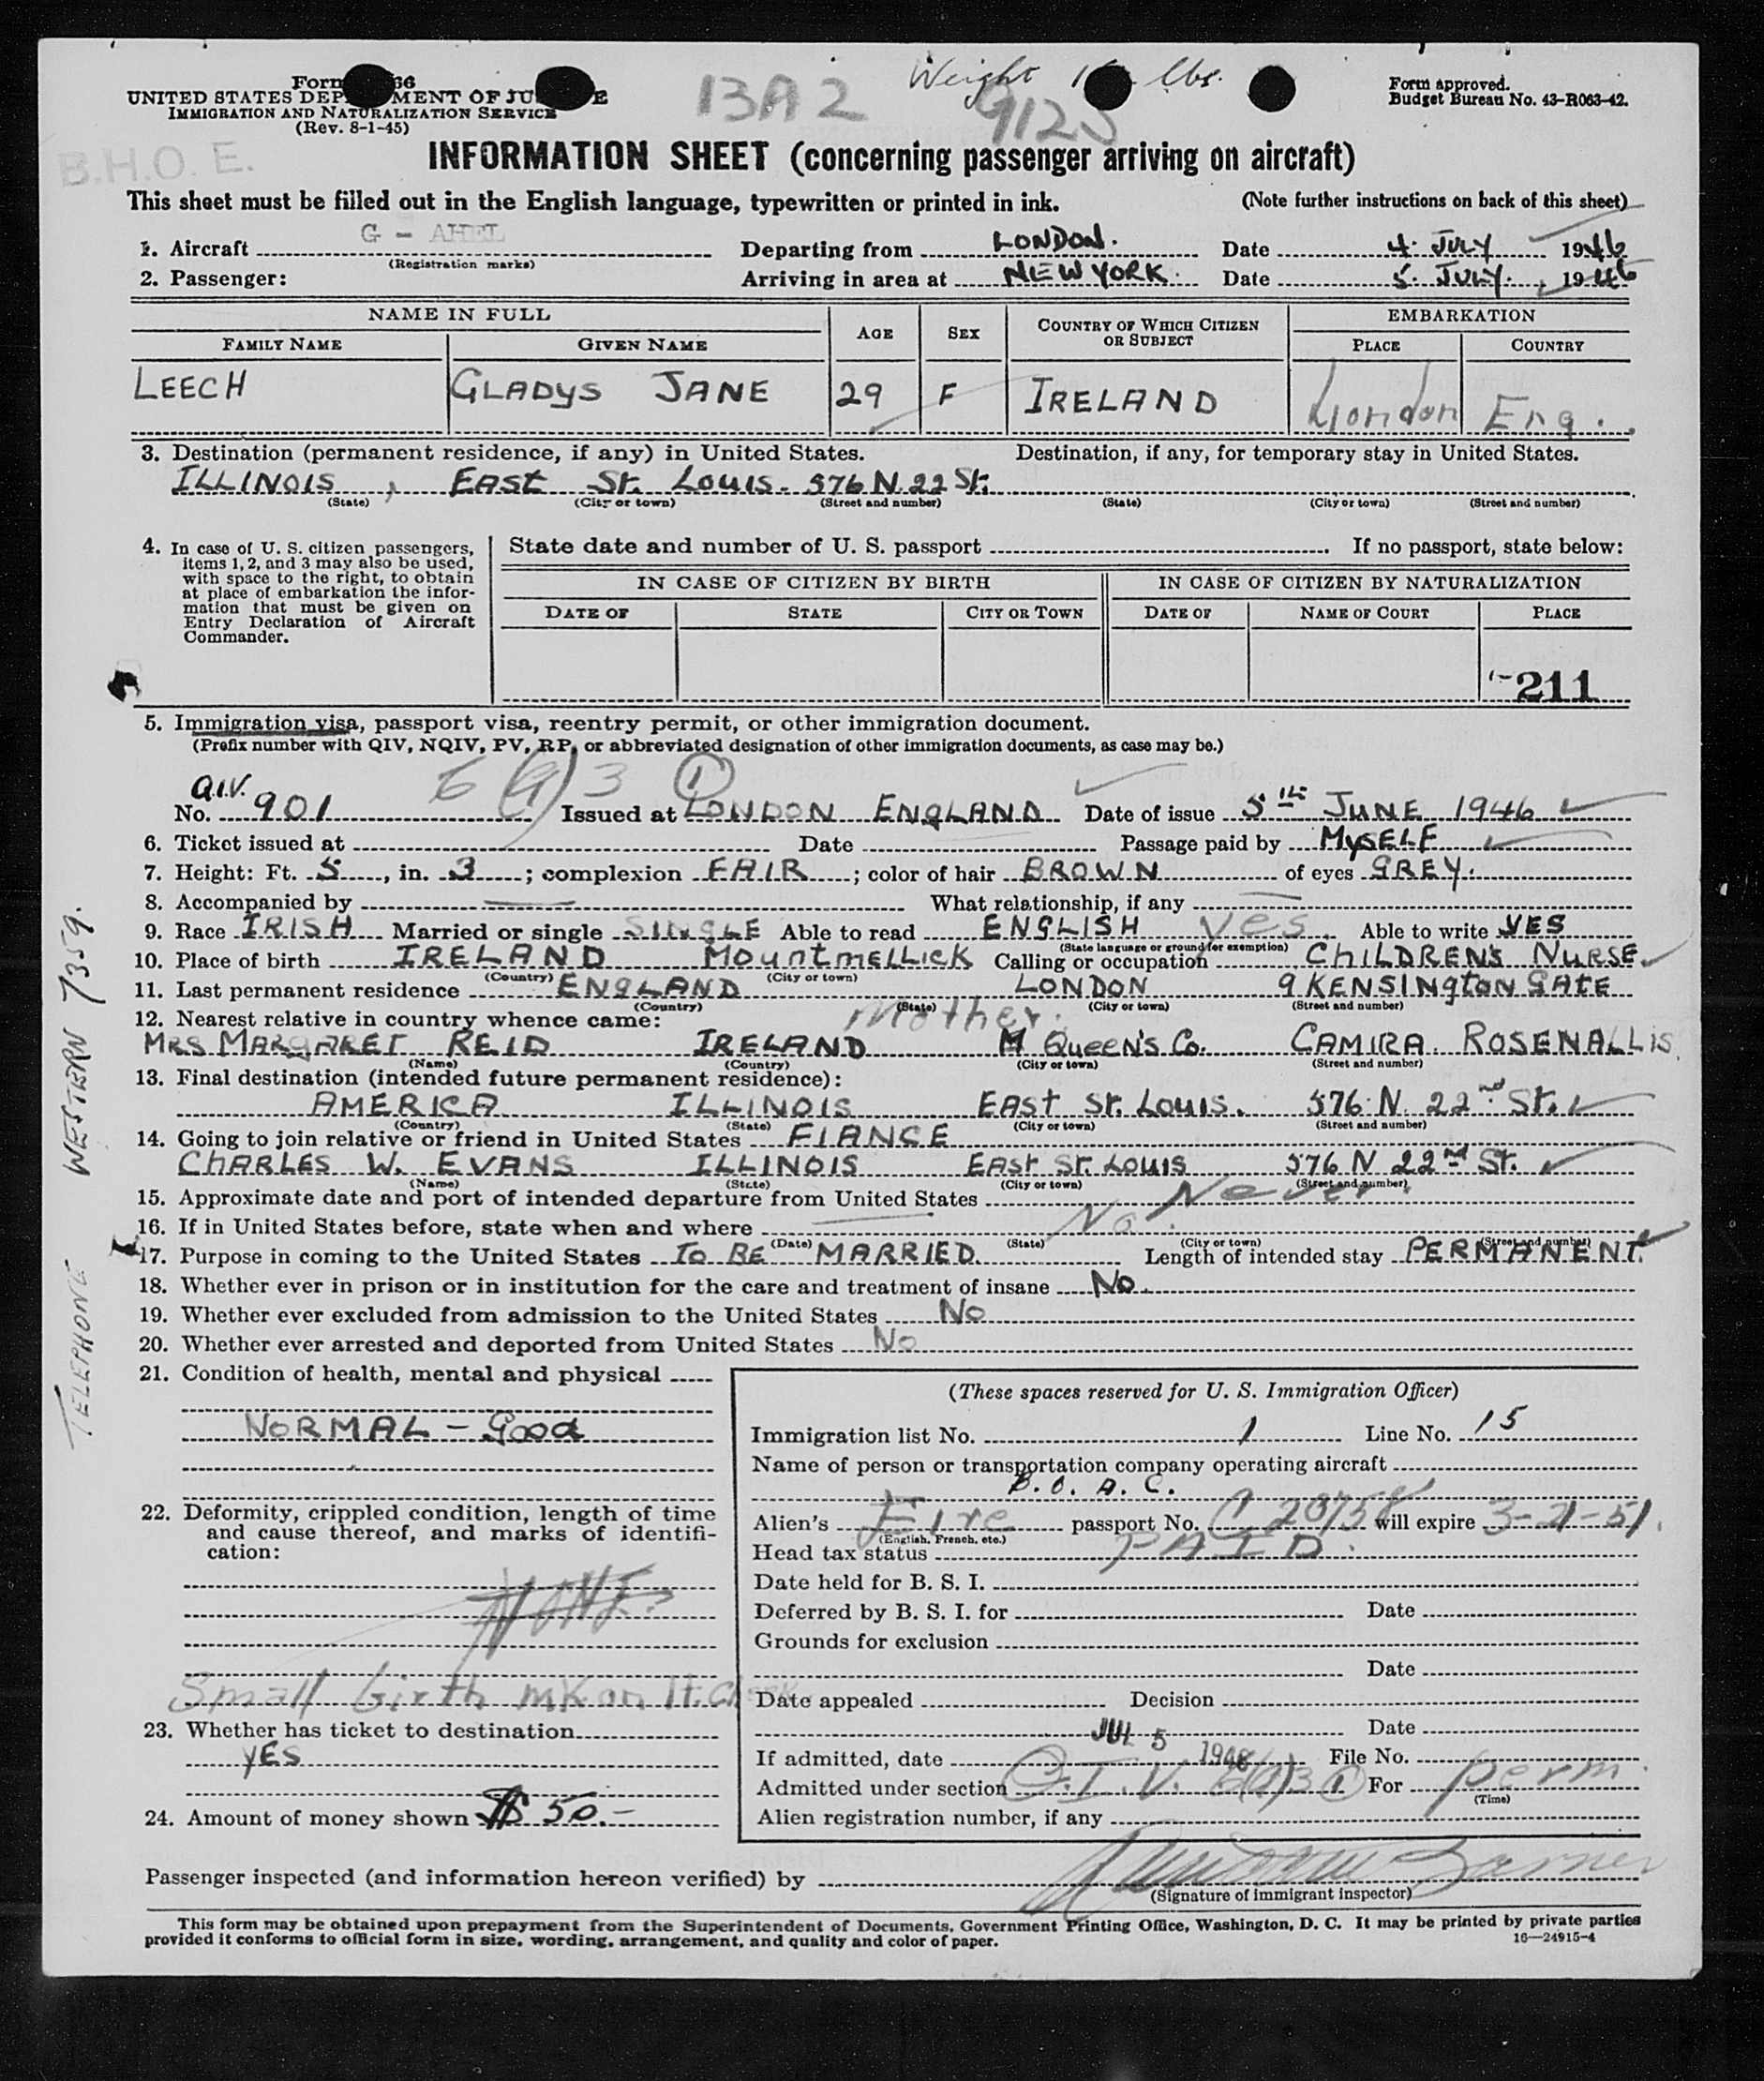 Weight lbs.
13A2
9125
Form 66
UNITED STATES DEP MENT OF JU E
IMMIGRATION AND NATURALIZATION SERVICE
(Rev. 8-1-45)
Form approved.
Budget Bureau No. 43-R063-42.
B.H.O. E.
INFORMATION SHEET (concerning passenger arriving on aircraft)
This sheet must be filled out in the English language, typewritten or printed in ink. (Note further instructions on back of this sheet)
1. Aircraft G - AHEL Departing from LONDON. Date 4. JULY 1946
(Registration marks)
2. Passenger: Arriving in area at NEW YORK. Date 5. JULY. 1946
NAME IN FULL AGE SEX COUNTRY OF WHICH CITIZEN OR SUBJECT EMBARKATION
FAMILY NAME GIVEN NAME PLACE COUNTRY
LEECH GLADYS JANE 29 F IRELAND London Eng.
3. Destination (permanent residence, if any) in United States. Destination, if any, for temporary stay in United States.
ILLINOIS, EAST ST. LOUIS. 576 N. 22 St.
(State) (City or town) (Street and number) (State) (City or town) (Street and number)
4. In case of U. S. citizen passengers,
items 1, 2, and 3 may also be used,
with space to the right, to obtain
at place of embarkation the infor-
mation that must be given on
Entry Declaration of Aircraft
Commander.
State date and number of U. S. passport . If no passport, state below:
IN CASE OF CITIZEN BY BIRTH IN CASE OF CITIZEN BY NATURALIZATION
DATE OF STATE CITY OR TOWN DATE OF NAME OF COURT PLACE
211
5. Immigration visa, passport visa, reentry permit, or other immigration document.
(Prefix number with QIV, NQIV, PV, RP, or abbreviated designation of other immigration documents, as case may be.)
Q.I.V. 6 (a) 3 (1)
No. 901 Issued at LONDON ENGLAND Date of issue 5th JUNE 1946
6. Ticket issued at Date Passage paid by MYSELF
7. Height: Ft. 5, in. 3; complexion FAIR; color of hair BROWN of eyes GREY.
8. Accompanied by What relationship, if any
9. Race IRISH Married or single SINGLE Able to read ENGLISH Yes Able to write YES
(State language or ground for exemption)
10. Place of birth IRELAND MOUNTMELLICK Calling or occupation CHILDREN'S NURSE
(Country) (City or town)
11. Last permanent residence ENGLAND LONDON 9 KENSINGTON GATE
(Country) (State) (City or town) (Street and number)
12. Nearest relative in country whence came: Mother.
MRS MARGARET REID IRELAND M QUEEN'S Co. CAMIRA. ROSENALLIS.
(Name) (Country) (City or town) (Street and number)
13. Final destination (intended future permanent residence):
AMERICA ILLINOIS EAST ST. LOUIS. 576. N. 22nd St.
(Country) (State) (City or town) (Street and number)
14. Going to join relative or friend in United States FIANCE
CHARLES W. EVANS ILLINOIS EAST ST. LOUIS 576 N 22nd St.
(Name) (State) (City or town) (Street and number)
15. Approximate date and port of intended departure from United States Never.
16. If in United States before, state when and where No.
(Date) (State) (City or town) (Street and number)
17. Purpose in coming to the United States TO BE MARRIED. Length of intended stay PERMANENT.
18. Whether ever in prison or in institution for the care and treatment of insane No.
19. Whether ever excluded from admission to the United States No
20. Whether ever arrested and deported from United States No
TELEPHONE WESTERN 7359.
21. Condition of health, mental and physical
NORMAL - Good
22. Deformity, crippled condition, length of time
and cause thereof, and marks of identifi-
cation:
NONE
Small birth mk on lt. cheek
23. Whether has ticket to destination
YES
24. Amount of money shown $ 50.-
(These spaces reserved for U. S. Immigration Officer)
Immigration list No. 1 Line No. 15
Name of person or transportation company operating aircraft
B. O. A. C.
Alien's Eire passport No. C 20758 will expire 3-21-51.
(English, French, etc.)
Head tax status PAID.
Date held for B. S. I.
Deferred by B. S. I. for Date
Grounds for exclusion
Date
Date appealed Decision
Date
If admitted, date JUL 5 1946 File No.
Admitted under section Q.I.V. 6(a)3(1) For perm.
(Time)
Alien registration number, if any
Passenger inspected (and information hereon verified) by
(Signature of immigrant inspector)
This form may be obtained upon prepayment from the Superintendent of Documents, Government Printing Office, Washington, D. C. It may be printed by private parties
provided it conforms to official form in size, wording, arrangement, and quality and color of paper.
16—24915-4